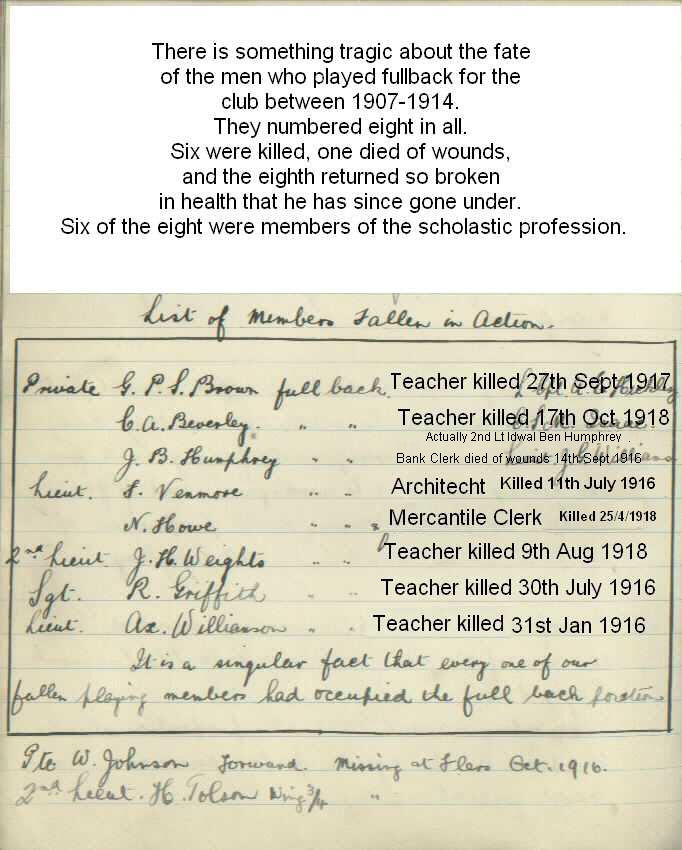 There is something tragic about the fate
of the men who played fullback for the
club between 1907-1914.
They numbered eight in all.
Six were killed, one died of wounds,
and the eighth returned so broken
in health that he has since gone under.
Six of the eight were members of the scholastic profession.
List of Members Fallen in Action.
Private G. P. S. Brown full back. Teacher killed 27th Sept 1917
C. A. Beverley. " " Teacher killed 17th Oct 1918
Actually 2nd Lt Idwal Ben Humphrey
J. B. Humphrey " " Bank Clerk died of wounds 14th Sept 1916
Lieut. F. Venmore " " Architecht Killed 11th July 1916
N. Howe " " Mercantile Clerk Killed 25/4/1918
2nd Lieut J. H. Weights " " Teacher killed 9th Aug 1918
Sgt. R. Griffith " " Teacher killed 30th July 1916
Lieut. Ax. Williamson " " Teacher killed 31st Jan 1916
It is a singular fact that every one of our
fallen playing members had occupied the full back position
Pte W. Johnson Forward. Missing at Flers Oct. 1916.
2nd Lieut. H. Tolson Wing 3/4 "